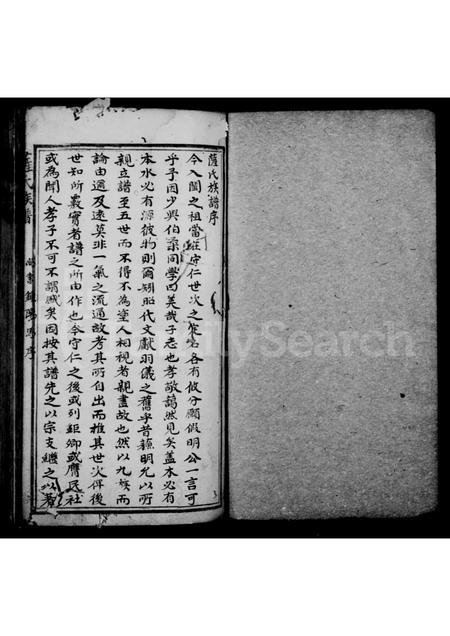 薩氏族譜序
今入閩之祖當班守仁世次之第名各有攸分願假明公一言可
乎予因少與伯 同學曰美哉子志也孝敬藹然見矣蓋木必有
本水必有源彼物則爾矧昭代文獻羽儀之舊乎昔蘇明允以所
親立譜至五世而不得不為塗人相視者親盡故也然以九族而
論由邇及遠莫非一氣之流通故考其所自出而推其世次俾後
世知所覈實者譜之所由作也今守仁之後或列鉅卿或膺民社
或為聞人孝子不可不謂盛矣因按其譜先之以宗支繼之以著
薩氏族譜
尚書 陽馬序
FamilySearch